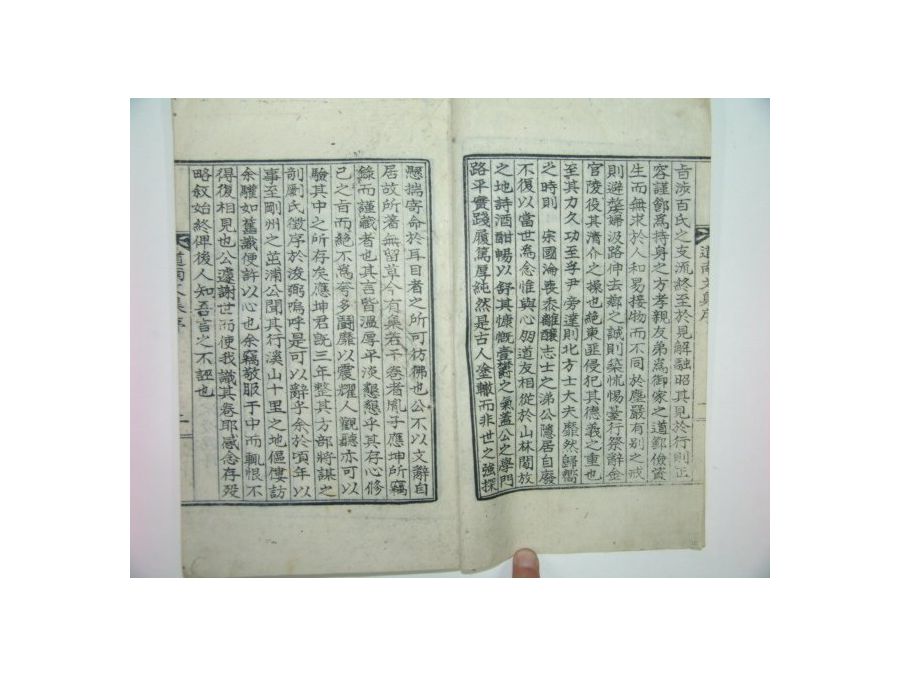 旨派百氏之支流終至於見解融昭其見於行則正
容謹節爲持身之方孝親友弟爲御家之道節儉資
生而無求於人和易接物而不同於塵嚴有別之戒
則避嫠婦汲路伸去鄉之誠則築怵惕臺行祭辭金
官陵役其淸介之操也絶東匪侵犯其德義之重也
至其力久功至孚尹旁達則北方士大夫靡然歸嚮
之時則 宗國淪喪黍離釀志士之涕公隱居自廢
不復以當世爲念惟與心朋道友相從於山林閒放
之地詩酒酣暢以舒其慷慨壹鬱之氣蓋公之學門
路平實踐履篤厚純然是古人塗轍而非世之强探
道南文集序
懸揣寄命於耳目者之所可彷彿也公不以文辭自
居故所著無留草今有集若干卷者胤子應坤所竊
錄而謹藏者也其言皆溫厚平淡懇懇乎其存心修
己之旨而絶不爲夸多鬪靡以震耀人觀聽亦可以
驗其中之所存矣應坤君旣三年整其方部將謀之
剞劂氏徵序於浚弼嗚呼是可以辭乎余於頃年以
事至剛州之茁浦公聞其行溪山十里之地傴僂訪
余驩如舊識便許以心也余竊敬服于中而輒恨不
得復相見也公遽謝世而便使我識其卷耶感念存歿
略叙始終俾後人知吾言之不誣也
道南文集序
二